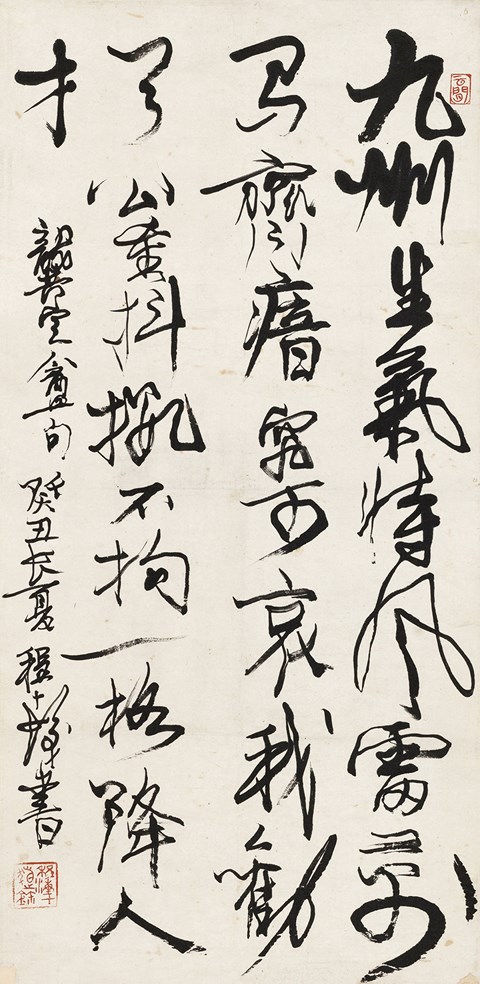 云間
九州生氣恃風雷萬
馬齊瘖究可哀我勸
天公重抖擻不拘一格降人
才
龔定盦句 癸丑長夏 程十髮書